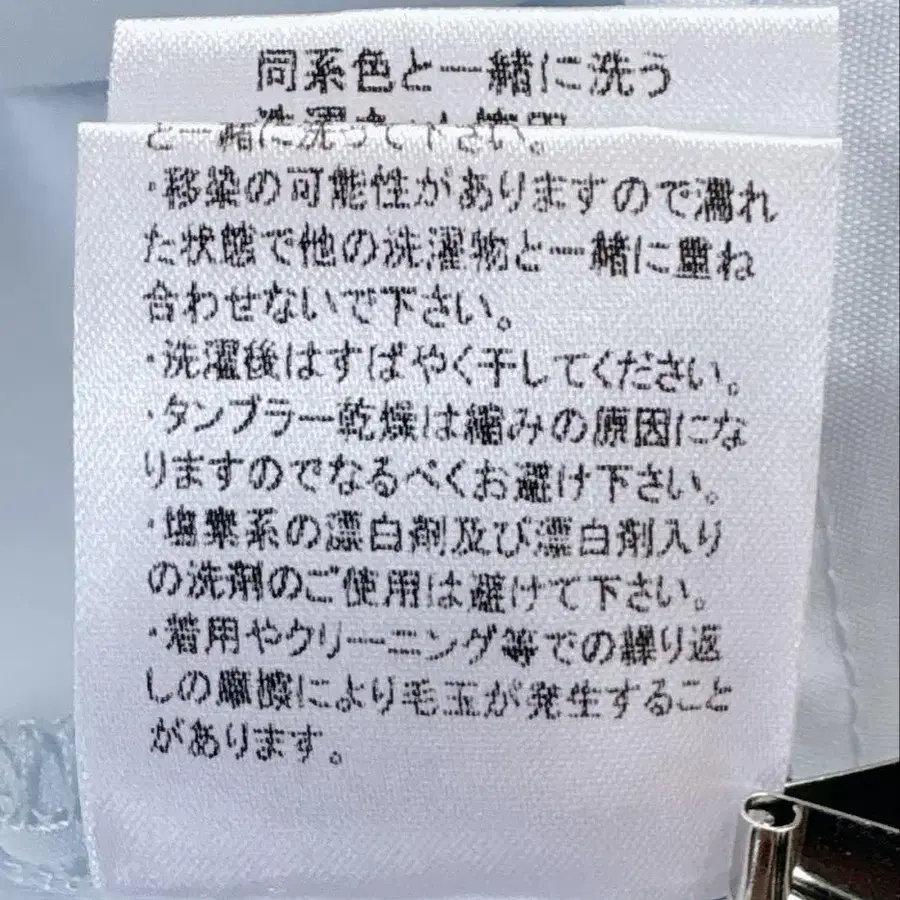 同系色と一緒に洗う
と一緒に洗って下さい。
・移染の可能性がありますので濡れ
た状態で他の洗濯物と一緒に重ね
合わせないで下さい。
・洗濯後はすばやく干してください。
・タンブラー乾燥は縮みの原因にな
りますのでなるべくお避け下さい。
・塩素系の漂白剤及び漂白剤入り
の洗剤のご使用は避けて下さい。
・着用やクリーニング等での繰り返
しの摩擦により毛玉が発生すること
があります。